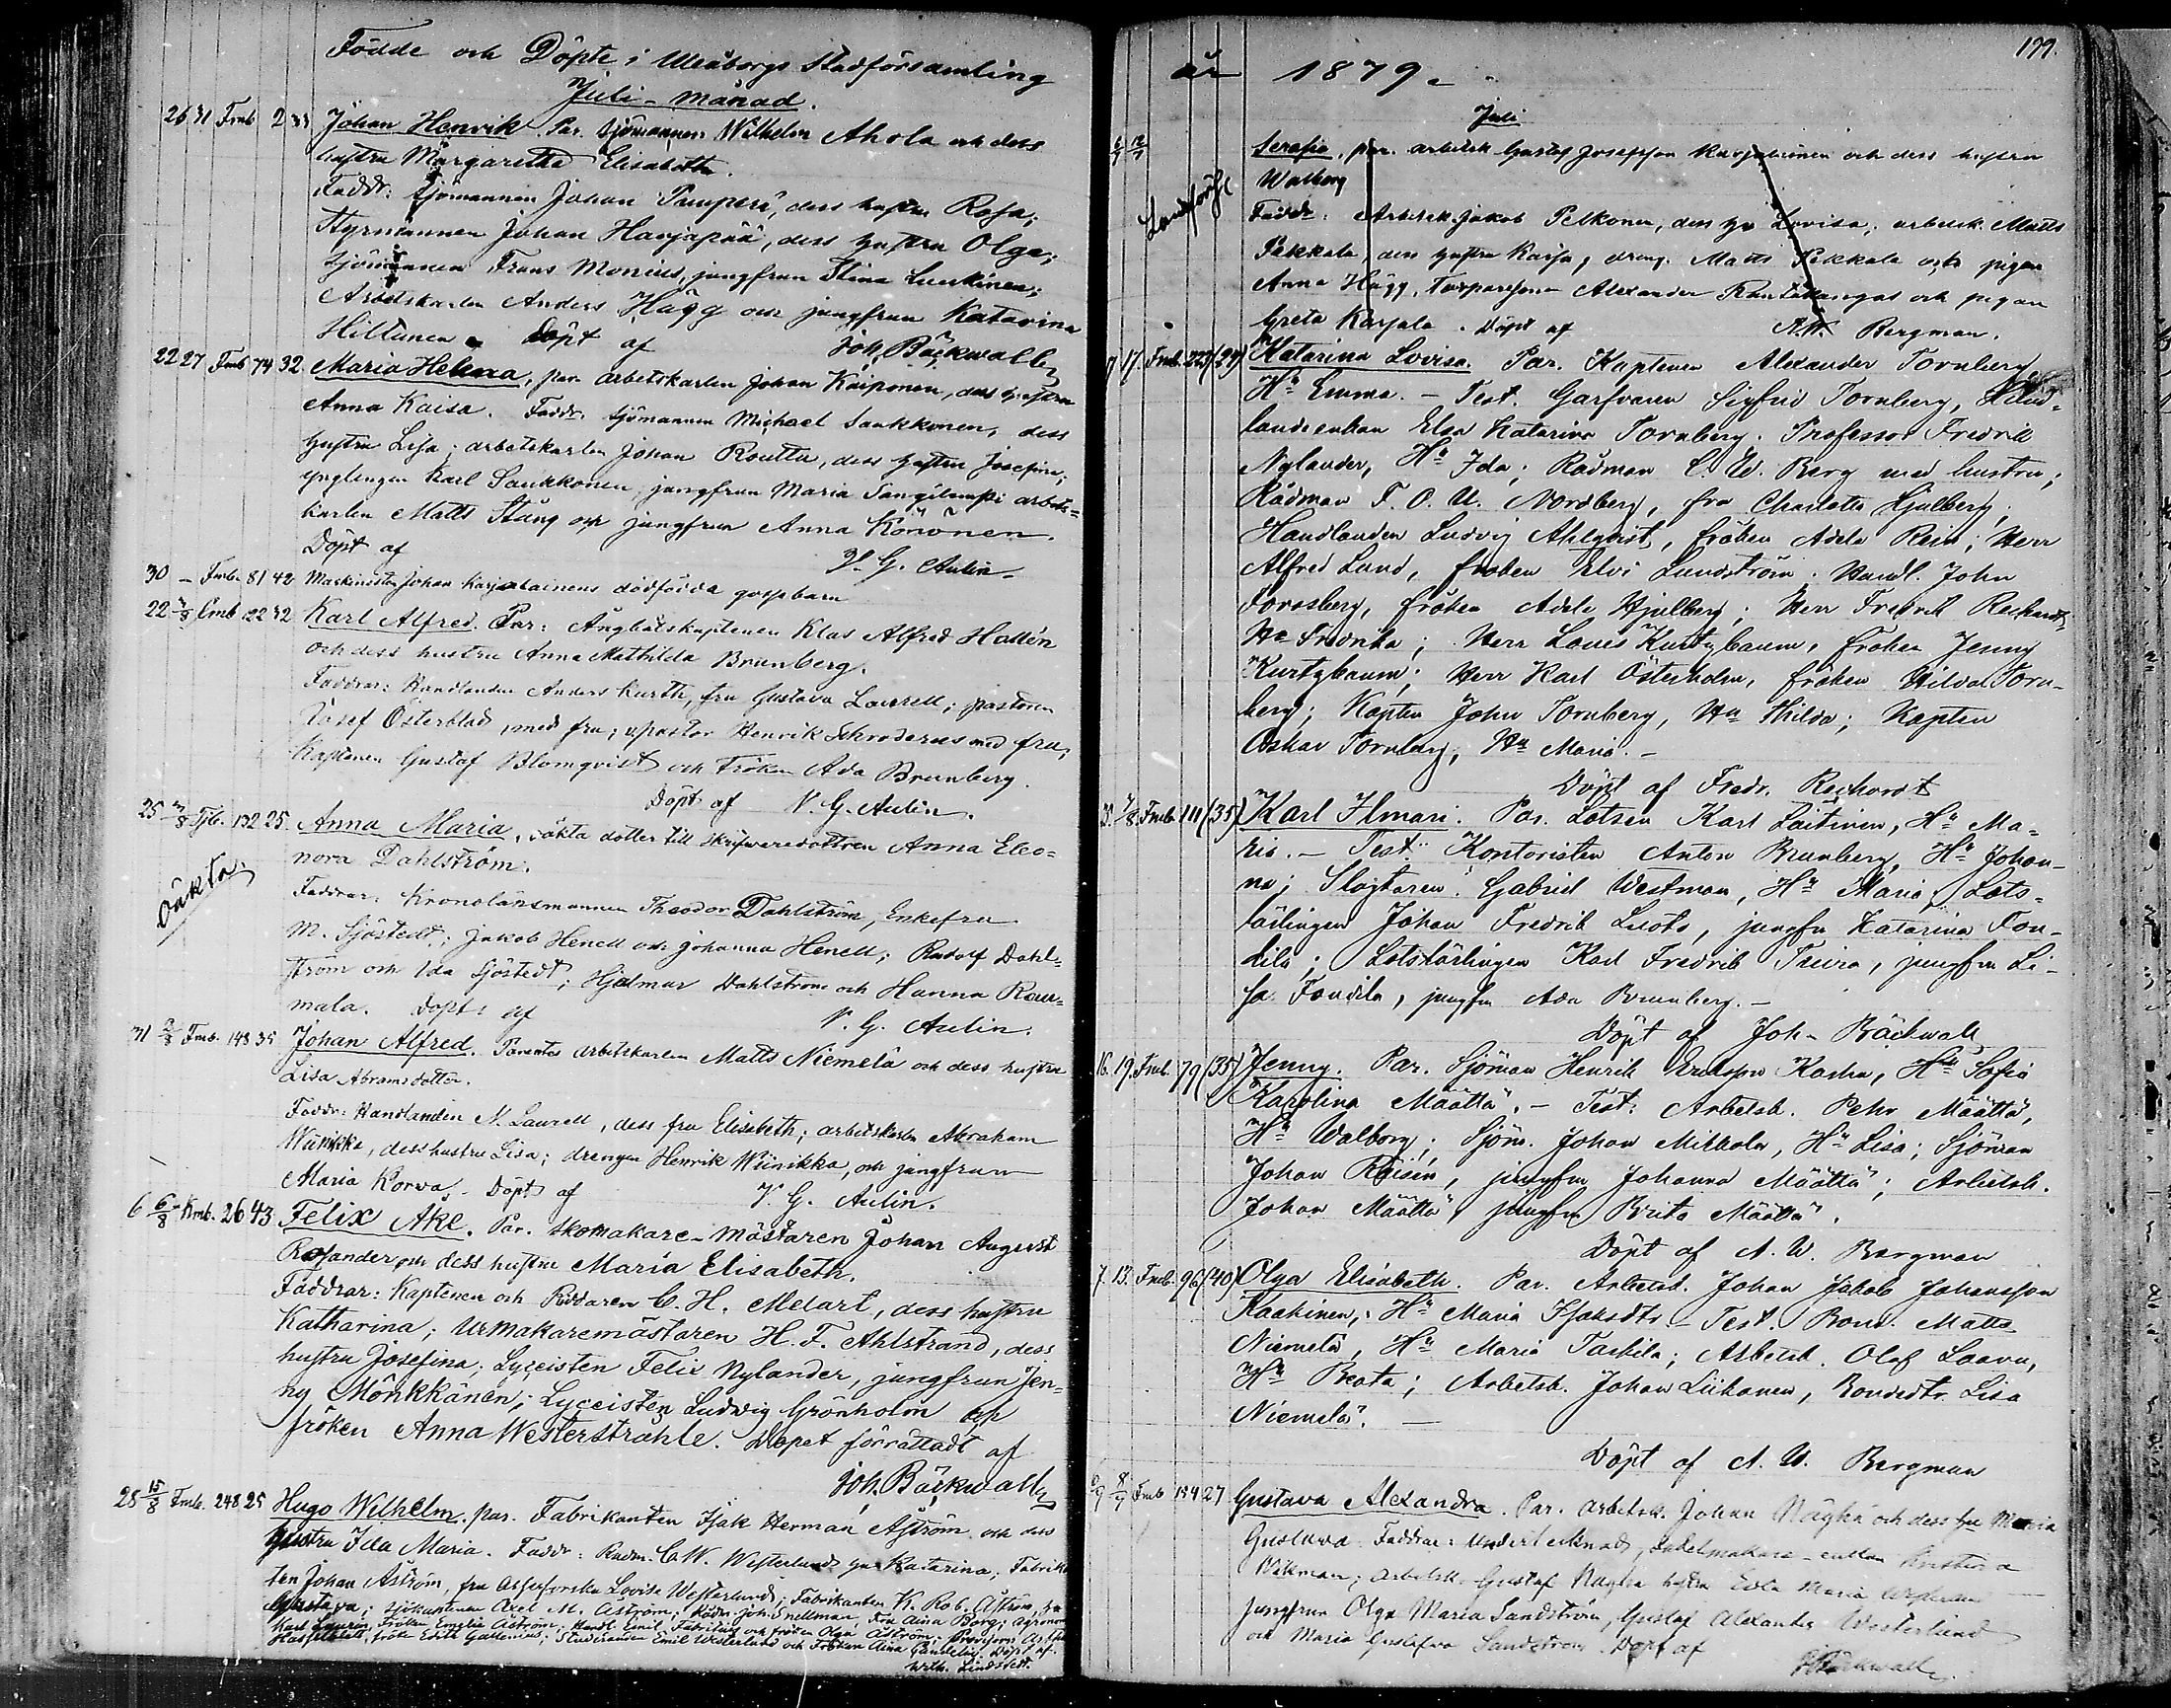 Födde och Döpte i Uleåborgs Stadsförsamling
Juli-månad.
26 31 Fmb 2 33 Johan Henrik. Par. Sjömannen Wilhelm Ahola och dess
hustru Margaretha Elisabeth.
Faddr: Sjömannen Johan Tamperi, dess hustru Rosa;
Styrmannen Johan Harjapää, dess hustru Olga;
Sjömannen Frans Monius, jungfrun Stina Luukinen;
Arbetskarlen Anders Hägg och jungfrun Katarina
Hiltunen. Döpt af Joh. Bäckwall
22 27 Fmb 74 32. Maria Helena, par. arbetskarlen Johan Kaiponen, dess hustru
Anna Kaisa. Faddr. Sjömannen Michael Saukkonen, dess
hustru Lisa; arbetskarlen Johan Routtu, dess hustru Josefina;
ynglingen Karl Saukkonen, jungfrun Maria arbets=
karlen Matts Stång och jungfrun Anna
Döpt af V. G. Aulin.
30 – Fmb. 81 42 Maskinisten Johan Karjalainens dödfödda gossebarn
22 3/8 Fmb 122 32 Karl Alfred. Par: Ångbåtskaptenen Klas Alfred Hallén
och dess hustru Anna Mathilda Brunberg.
Faddrar: Handlanden Anders Kurth, fru Gustava Laurell; pastorn
Josef Österblad, med fru; pastor Henrik Schroderus med fru;
Kaptenen Gustaf Blomqvist och Fröken Ada Brunberg.
Döpt af V. G. Aulin.
25 3/8 Tjb. 132 25. Anna Maria, oäkta dotter till Skrifvaredottren Anna Eleo=
nora Dahlström.
Oäkta
Faddrar: Kronolänsmannen Theodor Dahlström, Enkefru
M. Sjöstedt; Jakob Henell och Johanna Henell; Rudolf Dahl=
ström och Ida Sjöstedt; Hjalmar Dahlström och Hanna Rau=
mala. Döpt af V. G. Aulin.
31 2/8 Fmb. 148 35 Johan Alfred. Parentes arbetskarlen Matts Niemelä och dess hustru
Lisa Abramsdotter.
Faddr: Handlanden N. Laurell, dess fru Elisabeth; arbetskarlen Abraham
Wiinikka, dess hustru Lisa; drengen Henrik Wiinikka, och jungfrun
Maria Korva. Döpt af V. G. Aulin.
6 6/8 Kmb. 26 43. Felix Åke. Par. Skomakare-mästaren Johan August
Rosander och dess hustru Maria Elisabeth.
Faddrar: Kaptenen och Riddaren C. H. Melart, dess hustru
Katharina; Urmakaremästaren H. F. Ahlstrand, dess
hustru Josefina; Lyceisten Felix Nylander, jungfrun Jen=
ny Mönkkönen; Lyceisten Ludwig Grönholm och
fröken Anna Westerstråhle. Dopet förrättadt af
Joh. Bäckwall
28 15/8 Fmb. 248 25 Hugo Wilhelm. par. Fabrikanten Isak Herman Åström och dess
hustru Ida Maria. Faddr: Rådm. C. W. Westerlund Katarina; Fabrikan
ten Johan Åström, fru Lovisa Westerlund; Fabrikanten K. Rob. Åström,
Gustava; Sjökaptenen Axel M. Åström; Joh. Snellman, Fru Aina Berg; Agronom
Karl Fröken Emilie Åström; Handl. Emil och fröken Olga Åström; Provisorn
Hasselblatt, fröken Edith Gallenius; Studeranden Emil Westerlund och Fröken Aina Döpt af.
Wilh. Lindstedt.
199.
år 1879.
Juli
6/7 12/7 Serafia, par. arbetsk. Gustaf Josefsson Karjalainen och dess hustru
Walborg
Landsförs.
Faddr: Arbetsk. Jakob Pelkonen, dess hu Lovisa; arbetsk. Matts
Pekkala, dess hustru Kaisa; dreng. Matts Pekkala och pigan
Anna Hägg, Torparesonen Alexander Rantakangas och pigan
Greta Karjala. Döpt af A.W. Bergman.
7 17. Fmb. 223 (29) Katarina Lovisa. Par. Kaptenen Alexander Tornberg
Hu Emma. – Test. Garfvaren Sigfrid Tornberg, Hand=
landeenkan Elsa Katarina Tornberg. Professor Fredrik
Nylander, Hu Ida; Rådman C. W. Berg med hustru;
Rådman F. O. U. Nordberg, fru Charlotta Hjelberg;
Handlanden Ludvig Ahlqvist, fröken Adele Rein; Herr
Alfred Lund, fröken Elvi Lundström; Handl. John
Forssberg, fröken Adele Hjelberg; Herr Fredrik Rechardt,
Hu Fredrika; Herr Louis Kurtzbaum, fröken Jenny
Kurtzbaum; Herr Karl Österholm, fröken Hilda Torn-
berg; Kapten John Tornberg, Hu Hilda; Kapten
Oskar Tornberg, Hu Maria. –
Döpt af Fredr. Rechardt
3/8. Fmb. 111 (35) Karl Ilmari. Par. Lotsen Karl Laitinen, Hu Ma=
ria. – Test: Kontoristen Anton Brunberg, Hu Johan-
na; Slagtaren Gabriel Westman, Hu Maria; Lots=
lärlingen Johan Fredrik Luoto, jungfu Katarina Fon-
dila; Lotslärlingen Karl Fredrik Tuira, jungfru Li-
sa Fondila, jungfru Ada Brunberg. –
Döpt af Joh. Bäckwall
16. 19. Fmb. 79 (35) Jenny. Par. Sjöman Henrik Eriksson Koska, Hu Sofia
Karolina Määttä. – Test: Arbetsk. Pehr Määttä,
Hu Walborg; Sjöm. Johan Mikkola, Hu Lisa; Sjöman
Johan Räisen, jungfru Johanna Määttä; Arbetsk.
Johan Määttä, jungfru Brita Määttä.
Döpt af A. W. Bergman
7. 13. Fmb. 96 (40) Olga Elisabeth. Par. Arbetsk. Johan Jakob Johansson
Kaakinen, Hu Maria Isaksdtr – Test. Bond. Matts
Niemelä, Hu Maria Taskila; Arbetsk. Olof Laava,
Hu Beata; Arbetsk. Johan Liikanen, Bondedtr. Lisa
Niemelä. –
Döpt af A. W. Bergman
6/7 8/7 Fmb 184 27 Gustava Alexandra. Par. arbetsk. Johan Näyhä och dess hu Maria
Gustava. Faddrar: Undertecknad, Sadelmakare-enkan Kristina
Wikman; arbetsk. Gustaf Näyhä hustru Eva Maria
Jungfrun Olga Maria Sandström, Gustaf Alexander Westerlund
och Maria Gustafva Sandström. Döpt af
J Bäckwall